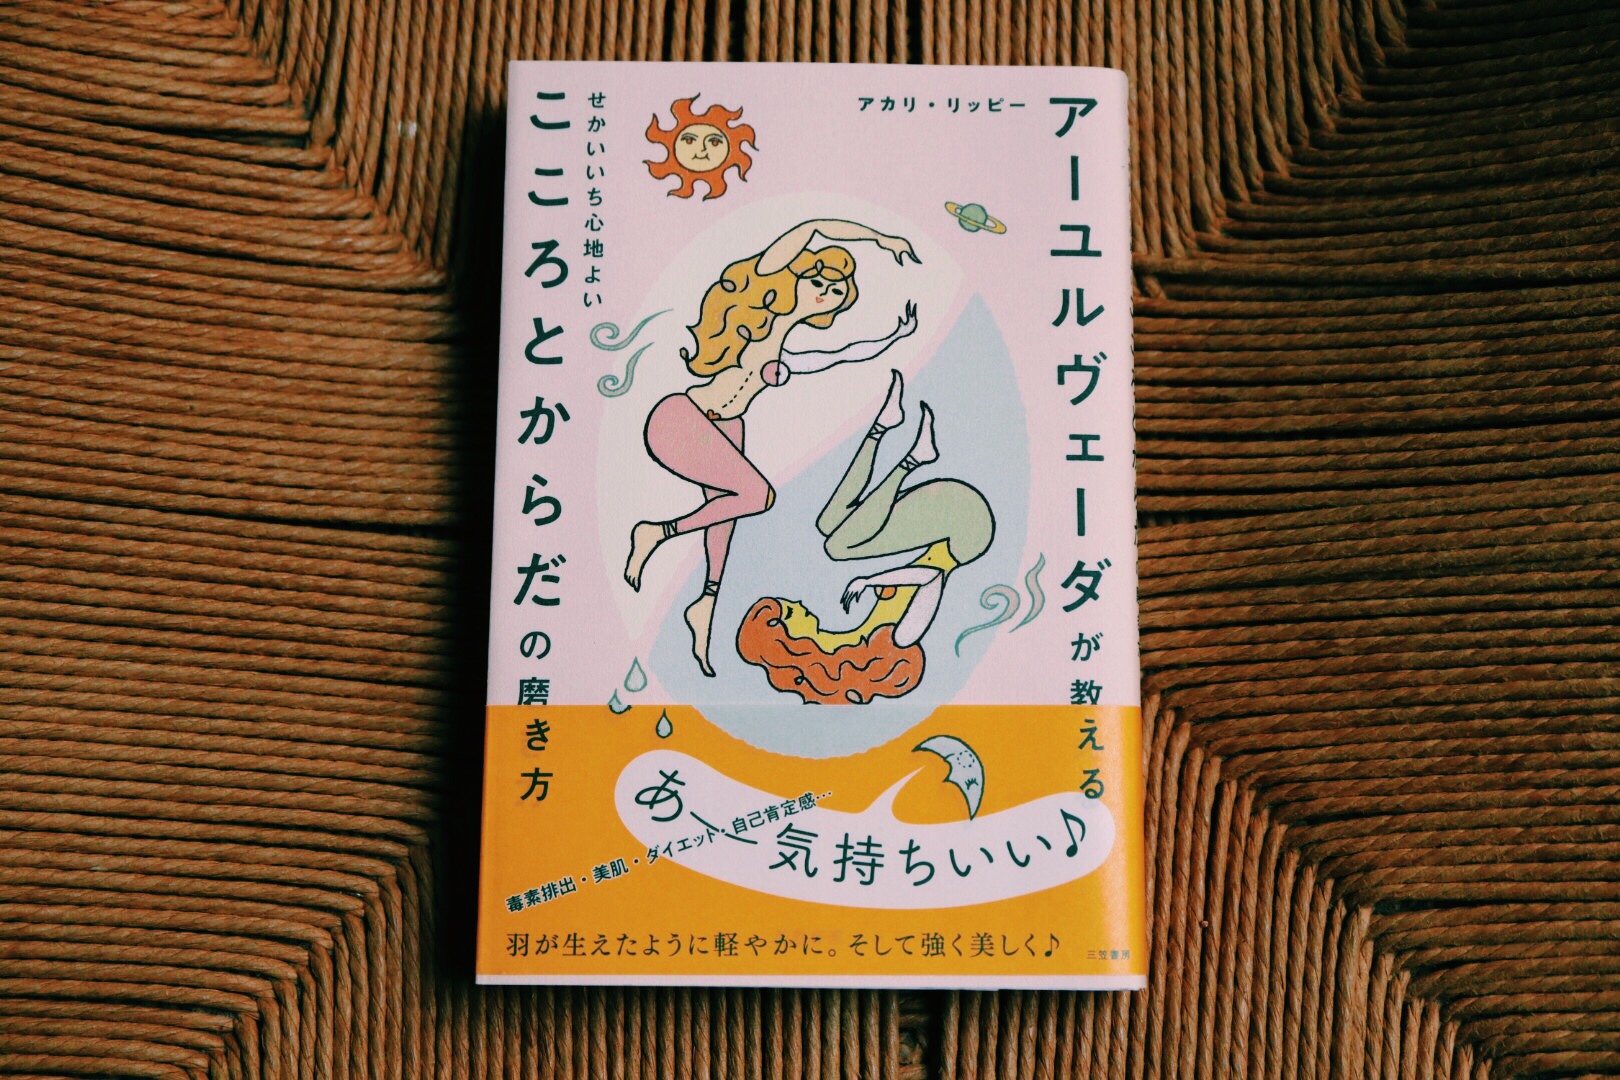 アーユルヴェーダが教える
せかいいち心地よい
こころとからだの磨き方
アカリ・リッピー
毒素排出・美肌・ダイエット・自己肯定感…
あ〜気持ちいい♪
羽が生えたように軽やかに。そして強く美しく♪
三笠書房